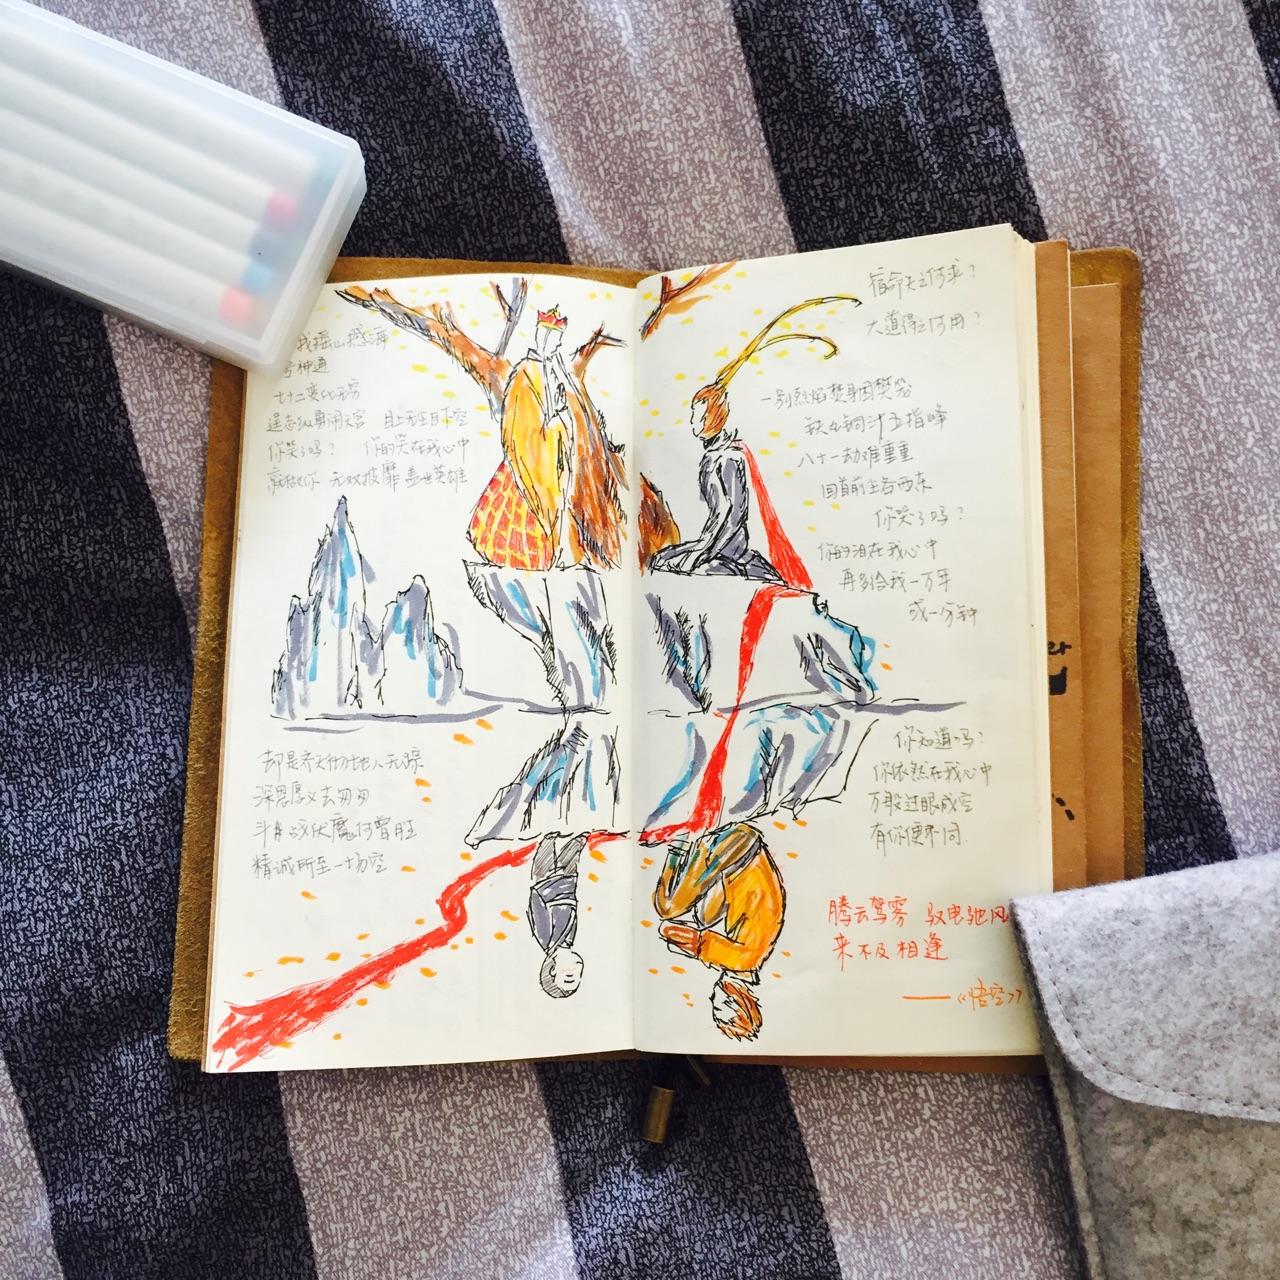 我摇山撼海
神通
七十二变化无穷
遥击纵鼻闹天宫 目上无生目下空
你笑了吗? 你的笑在我心中
就做你 无双披靡 盖世英雄
却是齐天伤地人无踪
深思愿义去匆匆
斗战伏魔何曾胜
精诚所至一场空
宿命知之何求?
大道得之何用?
一别烈焰焚身困樊笼
铁丸铜汁五指峰
八十一劫难重重
回首前尘各西东
你哭了吗?
你的泪在我心中
再多给我一万年
或一分钟
你知道吗?
你依然在我心中
万般过眼成空
有你便不同.
腾云驾雾 驭电驰风
来不及相逢
——《悟空》